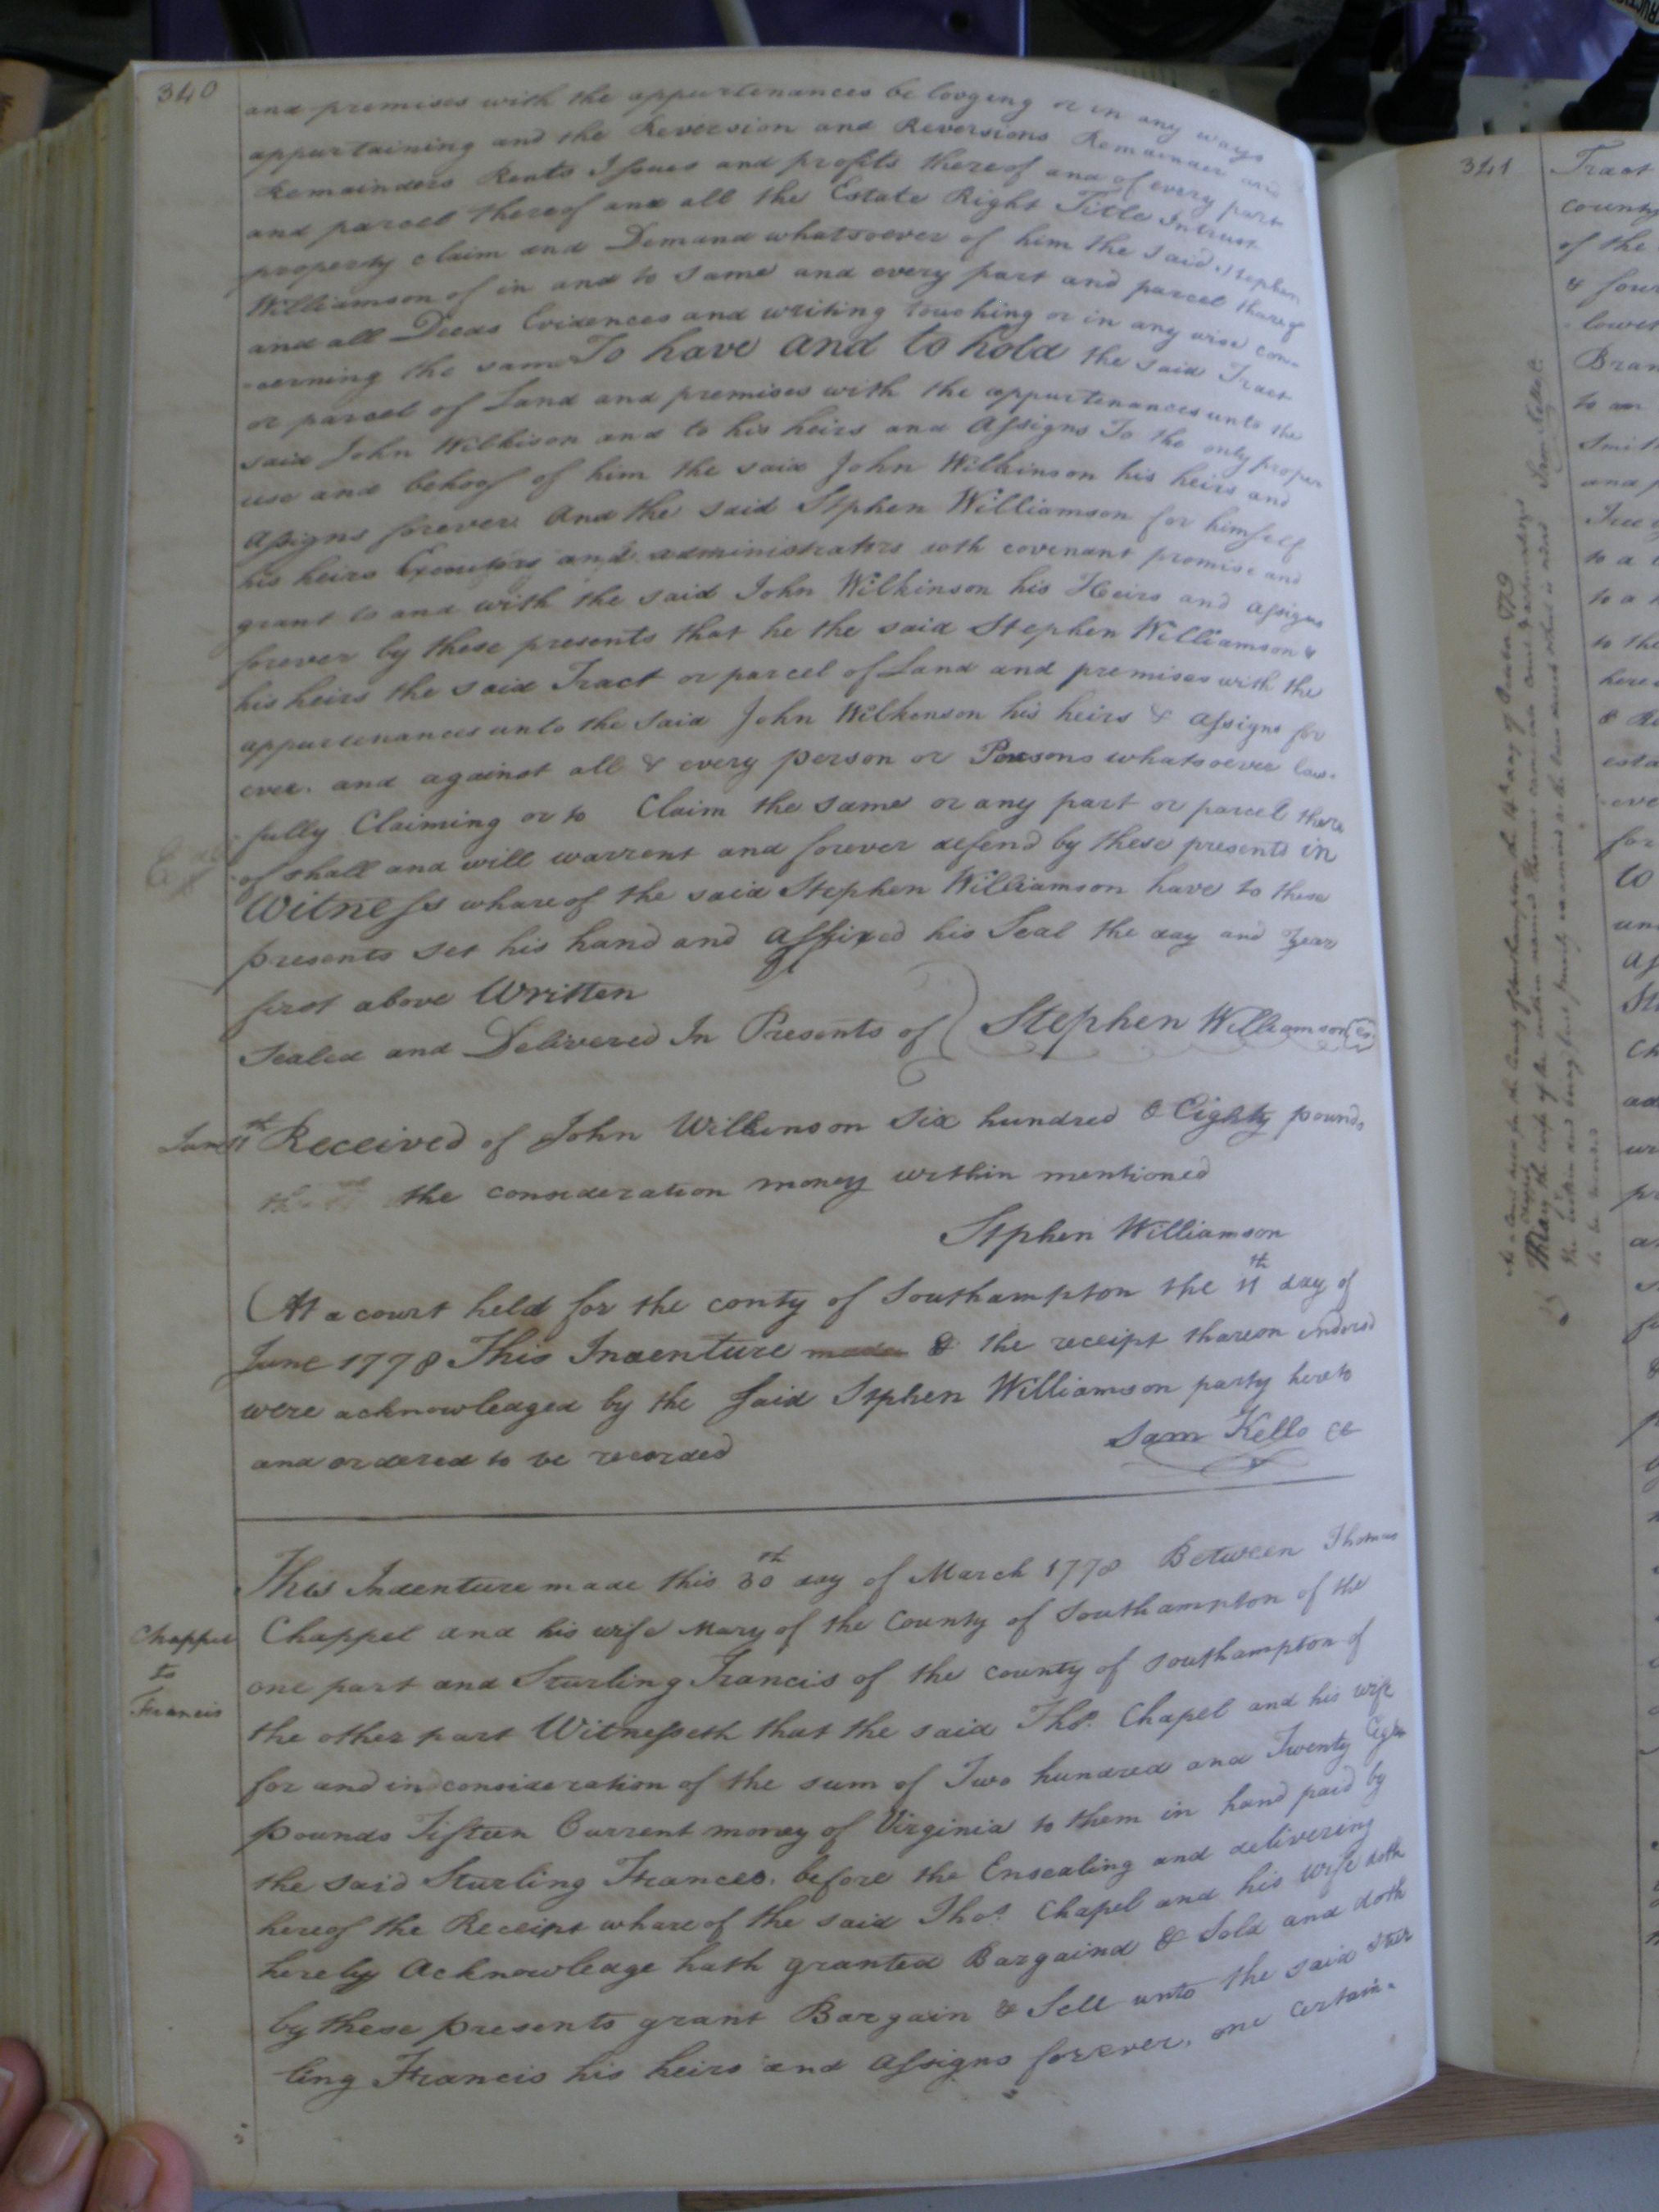 340
and premises with the appurtenances belonging or in any ways
appurtaining and the Reversion and Reversions Remainder and
Remainders Rents Issues and profits thereof and of every part
and parcel thereof and all the Estate Right Title Intrust
property claim and Demand whatsoever of him the said Stephen
Williamson of in and to same and every part and parcel thareof
and all Deeds Evidences and writing touching or in any wise con-
-cerning the same To have and to hold the said Tract
or parcel of Land and premises with the appurtenances unto the
said John Wilkison and to his heirs and Assigns To the only proper
use and behoof of him the said John Wilkinson his heirs and
Assigns forever And the said Stphen Williamson for himself
his heirs Executors and administrators doth covenant promise and
grant to and with the said John Wilkinson his Heirs and assigns
forever by these presents that he the said Stephen Williamson &
his heirs the said Tract or parcel of Land and premises with the
appurtenances unto the said John Wilkonson his heirs & assigns for
ever. and against all & every person or Persons whatsoever law-
-fully Claiming or to Claim the same or any part or parcel there
-of shall and will warrent and forever defend by these presents in
Witness whareof the said Stephen Williamson have to these
presents set his hand and affixed his Seal the day and year
first above Written
Sealed and Delivered In Presents of } Stephen Williamson
June 11th Received of John Wilkinson Six hundred & Eighty pounds
the consideration money within mentioned
Stphen Williamson
At a court held for the conty of Southampton the 11th day of
June 1778 This Indenture made & the receipt thareon endorsd
were acknowledged by the said Stphen Williamson party hereto
and ordered to be recorded
Sam Kello CC
This Indenture made this 30th day of March 1778 Between Thomas
Chappel
to
Francis
Chappel and his wife Mary of the County of Southampton of the
one part and Sturling Francis of the county of Southampton of
the other part Witnesseth that the said Thos. Chapel and his wife
for and in consideration of the sum of Two hundred and Twenty Eight
pounds Fifteen Current money of Virginia to them in hand paid by
the said Sturling Frances. before the Ensealing and delivering
hereof the Receipt whareof the said Thos. Chapel and his wife doth
hereby Acknowledge hath granted Bargaind & Sold and doth
by these presents grant Bargain & Sell unto the said Ster
ling Francis his heirs and Assigns forever. one certain-
341
Tract
county
of the
& four
lowes
Bran
to an
Smith
and
to a
to a
to the
here
esta
for
to
un